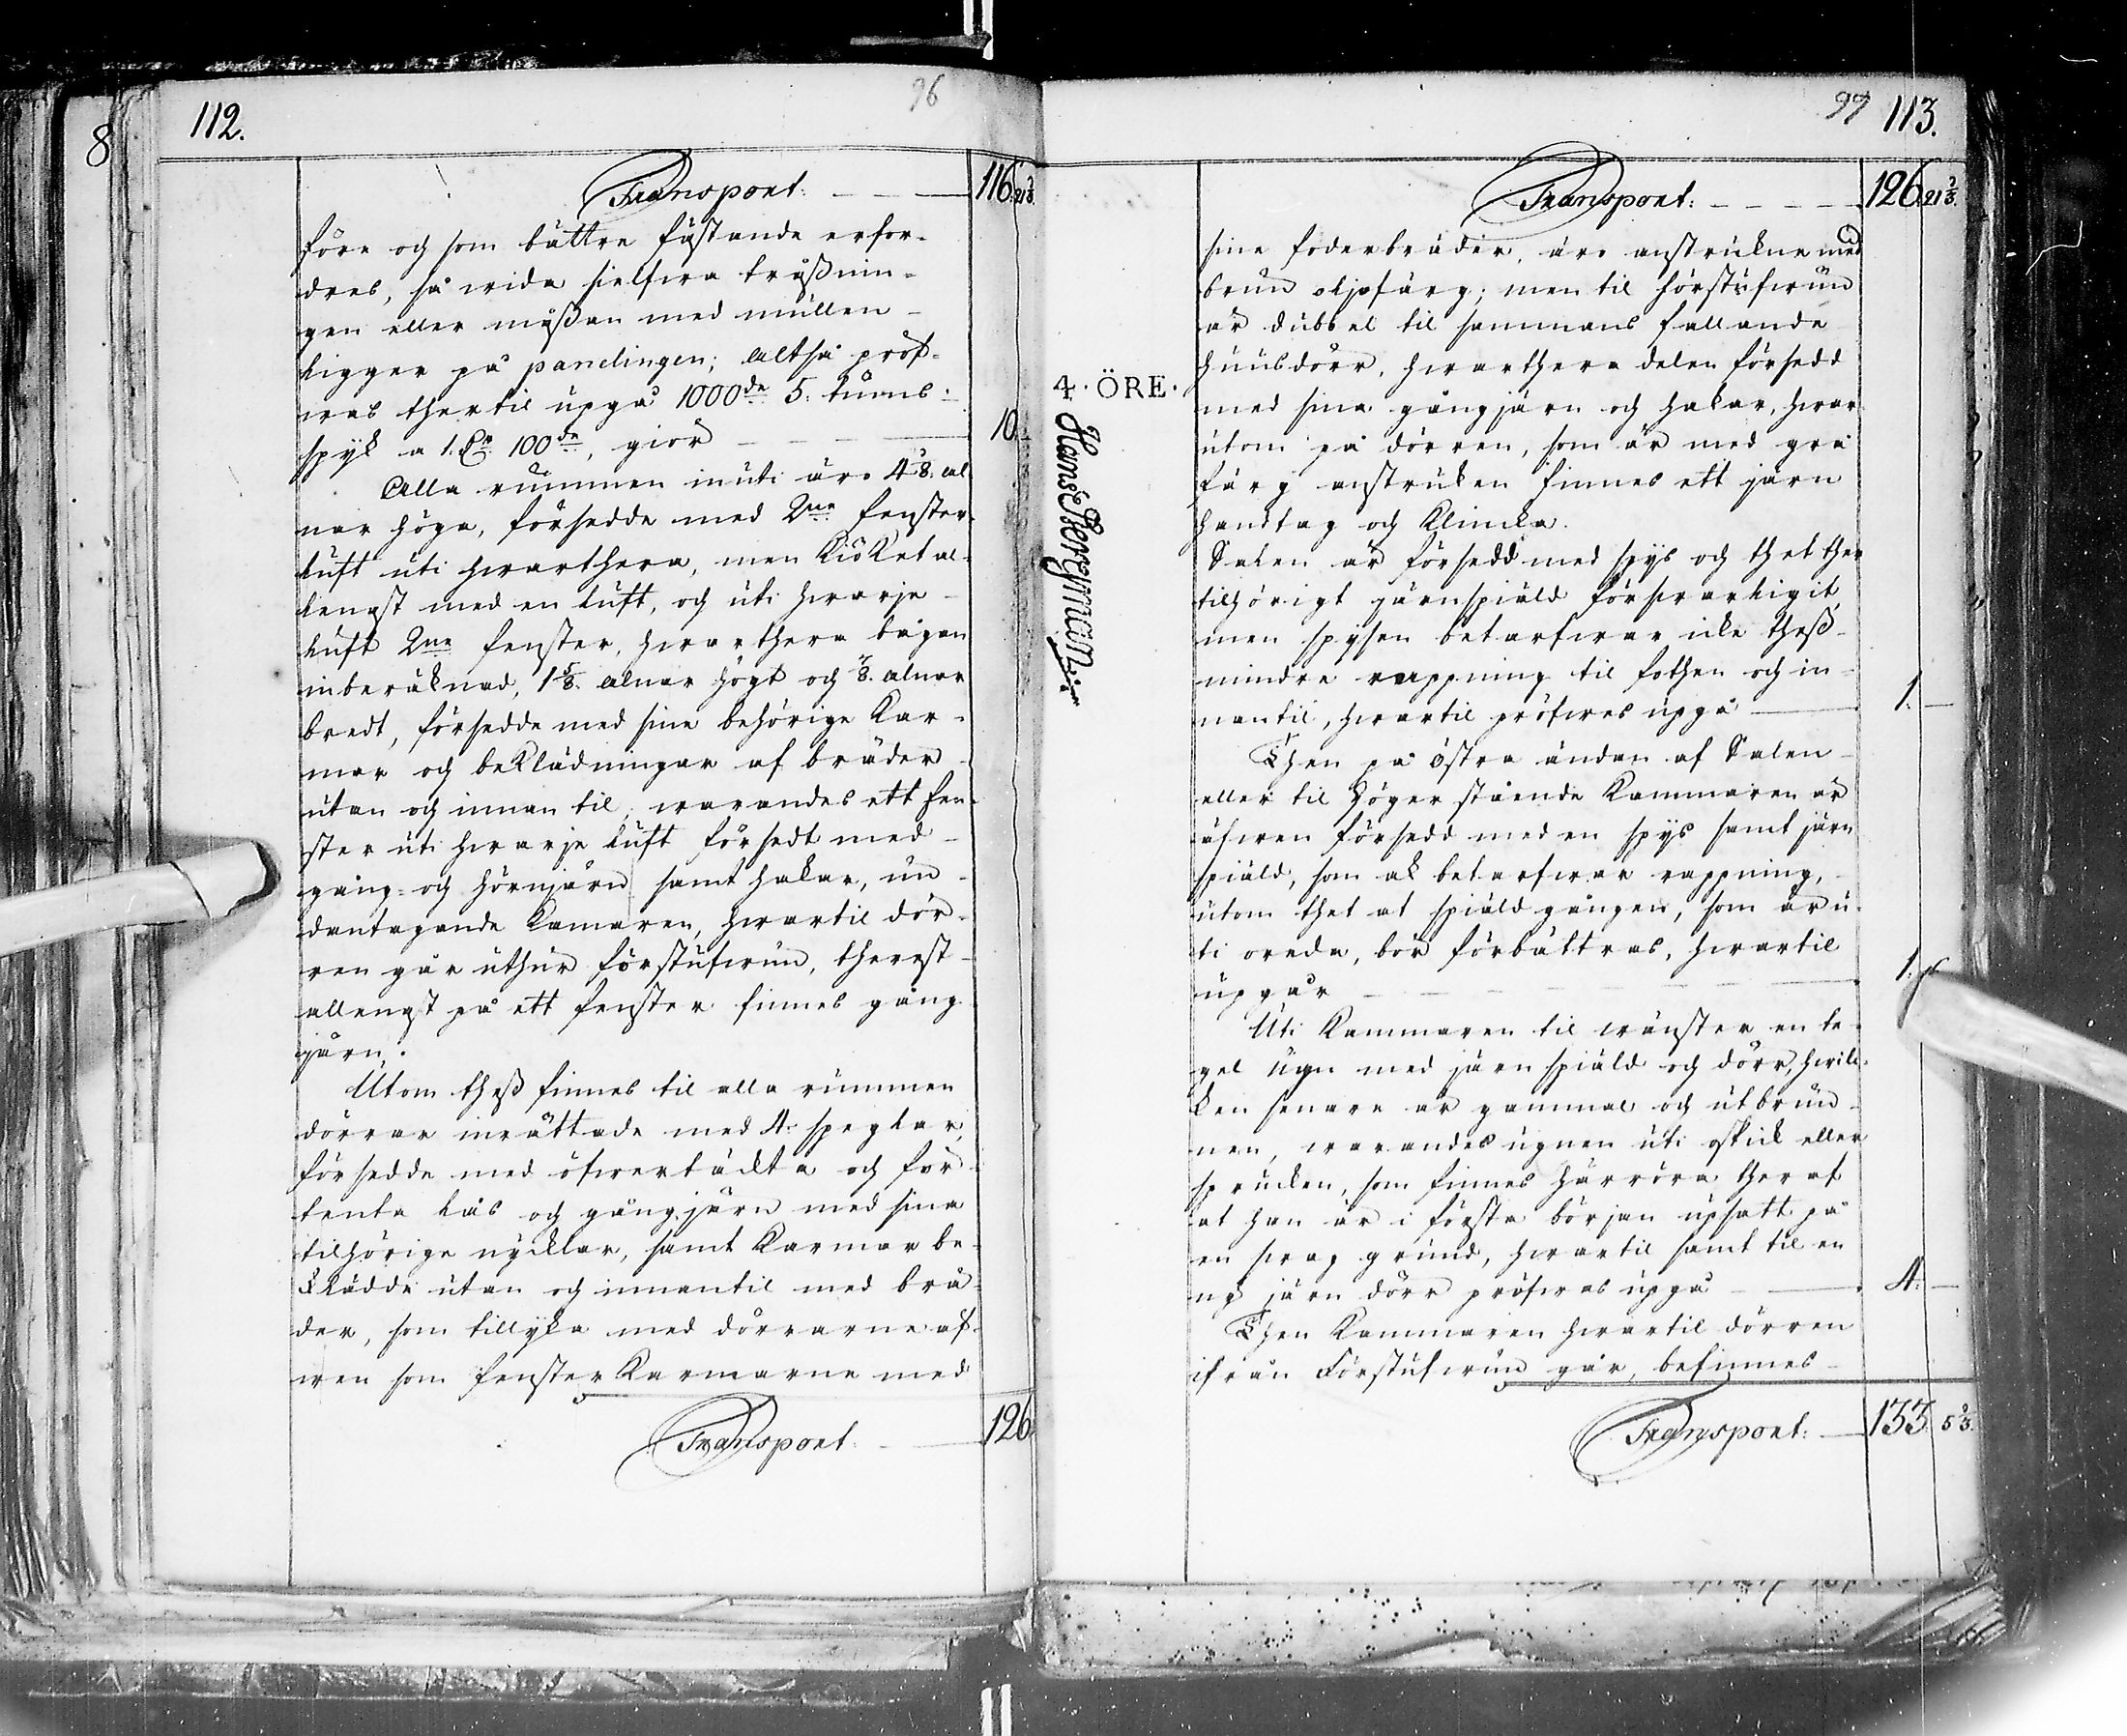 8
112.
96
Transport: 116. 21 1/3.
före och som bättre fästande erfor-
dras, så wida sielfwa träßnin-
gen eller mäßan med mullen
ligger på panelingen; altså pröf-
was thertil upgå 1000de 5. tums
spyk a 1. Dr 100de, giör 10.
Alla rummen inuti äro 4 1/8. al
nar höga, försedde med 2ne fenster-
luft uti hwarthera, men Kiöket al-
lenast med en luft, och uti hwarje
luft 2ne fenster, hwarthera bågan
inberäknad, 1 5/8. alnar högt och 7/8. alnar
bredt, försedde med sine behörige Kar-
mar och beklädningar af bräder
utan och innan til, warandes ett fen-
ster uti hwarje luft försedt med
gång- och hörnjärn samt hakar, un-
dantagande Kamaren, hwartil dör-
ren går uthur förstufwun, therest
allenast på ett fenster finnes gång-
järn.
Utom theß finnes til alla rummen
dörrar inrättade med 4: speglar,
försedde med öfwertäckta och för-
tenta lås och gångjärn med sina
tilhörige nycklar, samt Karmar be-
klädde utan och innantil med brä-
der, som tillyka med dörrarne äf-
wen som fenster Karmarne med
Transport: 126.
97
113.
Transport: 126. 21 1/3.
4. ÖRE.
Hans Bergman
sine foderbräder, äro anstrukne med
brun oljefärg; men til förstufwun
är dubbel til sammans fallande
huusdörr, hwarthera delen försedd
med sina gångjärn och hakar, hwar
utom på dörren, som är med grå
färg anstruken finnes ett järn
handtag och Klincka.
Salen är försedd med spys och thet ther
tilhörigt järnspiäld förswarligit,
men spysen betarfwar icke theß
mindre rappning til fothen och in-
nantil, hwartil pröfwes upgå 1. —
Then på östra ändan af Salen
eller til höger stående Kammaren är
äfwen försedd med en spys samt järn
spiäld, som ak betarfwar rappning,
utom thet at spiäldgången, som är u-
ti oreda, bör förbättras, hwartil
upgår 1.
Uti Kammaren til wänster en te-
gel ugn med järn spiäld och dörr, hwil-
ken senare är gammal och utbrun-
nen, warandes ugnen uti oskick eller
sprucken, som finnes härröra theraf
at han är i första början upsatt på
en swag grund, hwartil samt til en
ny järn dörr pröfwas upgå 4. —
Then Kammaren hwartil dörren
ifrån Förstufwun går, befinnes
Transport: 133. 5 1/3.